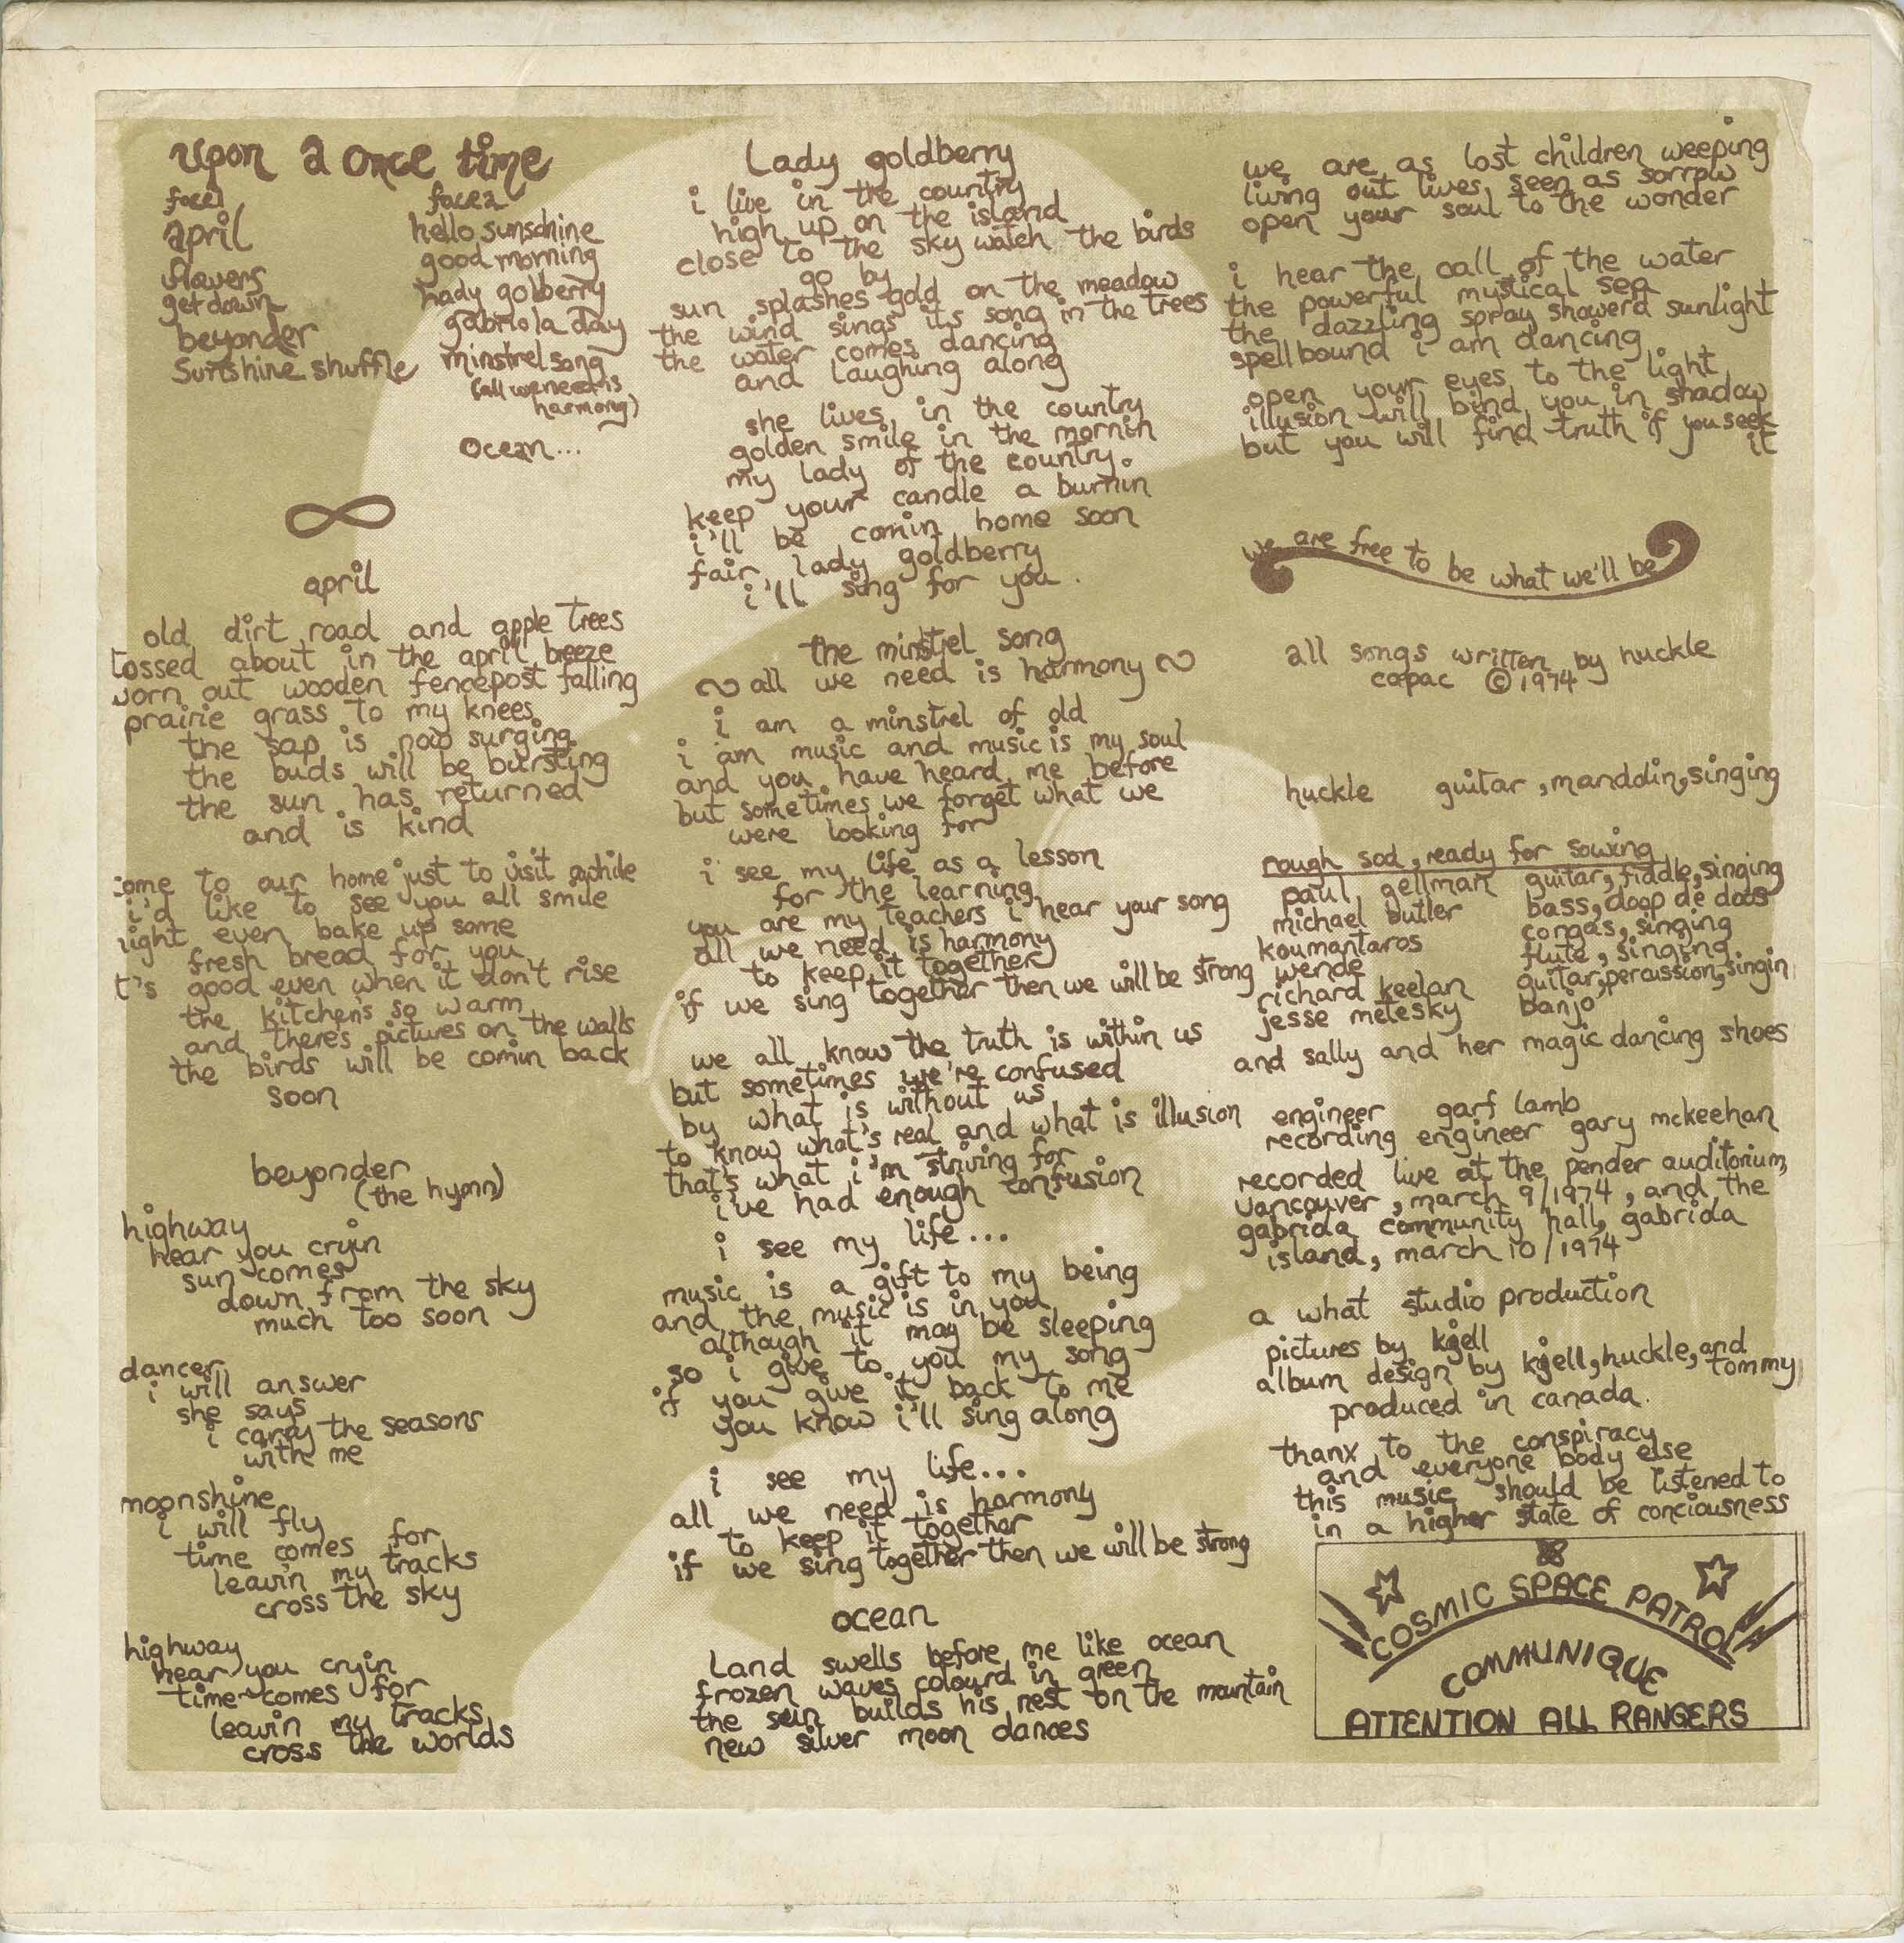 upon a once time
face1
april
flowers
get down
beyonder
Sunshine shuffle
face2
hello sunschine
good morning
lady golberry
gabriola day
minstrel song
(all we need is
harmony)
ocean...
april
old dirt road and apple trees
tossed about in the april breeze
worn out wooden fencepost falling
prairie grass to my knees
the sap is now surging
the buds will be bursting
the sun has returned
and is kind
come to our home just to visit awhile
i'd like to see you all smile
might even bake up some
fresh bread for you
it's good even when it don't rise
the kitchen's so warm
and there's pictures on the walls
the birds will be comin back
soon
beyonder
(the hymn)
highway
hear you cryin
sun comes
down from the sky
much too soon
dancer
i will answer
she says
i carry the seasons
with me
moonshine
i will fly
time comes for
leavin my tracks
cross the sky
highway
hear you cryin
time comes for
leavin my tracks
cross the worlds
Lady goldberry
i live in the country
high up on the island
close to the sky watch the birds
go by
sun splashes gold on the meadow
the wind sings its song in the trees
the water comes dancing
and laughing along
she lives in the country
golden smile in the mornin
my lady of the country.
keep your candle a burnin
i'll be comin home soon
fair lady goldberry
i'll sing for you.
the minstrel song
all we need is harmony
i am a minstrel of old
i am music and music is my soul
and you have heard me before
but sometimes we forget what we
were looking for
i see my life as a lesson
for the learning
you are my teachers i hear your song
all we need is harmony
to keep it together
if we sing together then we will be strong
we all know the truth is within us
but sometimes we're confused
by what is without us
to know what's real and what is illusion
that's what i'm striving for
i've had enough confusion
i see my life...
music is a gift to my being
and the music is in you
although it may be sleeping
so i give to you my song
if you give it back to me
you know i'll sing along
i see my life...
all we need is harmony
to keep it together
if we sing together then we will be strong
ocean
Land swells before me like ocean
frozen waves colourd in green
the sun builds his nest on the mountain
new silver moon dances
we are as lost children weeping
living out lives seen as sorrow
open your soul to the wonder
i hear the call of the water
the powerful mystical sea
the dazzling spray showerd sunlight
spellbound i am dancing
open your eyes to the light
illusion will bind you in shadow
but you will find truth if you seek
it
we are free to be what we'll be
all songs written by huckle
capac © 1974
huckle guitar, mandolin, singing
rough sod, ready for sowing
paul gellman guitar, fiddle, singing
michael butler bass, doop de doos
koumantaros congas, singing
wende flute, singing
richard keelan guitar, percussion, singin
jesse metesky banjo
and sally and her magic dancing shoes
engineer garf lamb
recording engineer gary mckeehan
recorded live at the pender auditorium,
vancouver, march 9/1974, and the
gabriola community hall, gabriola
island, march 10/1974
a what studio production
pictures by kjell
album design by kjell, huckle, and
tommy
produced in canada.
thanx to the conspiracy
and everyone body else
this music should be listened to
in a higher state of conciousness
COSMIC SPACE PATROL
COMMUNIQUE
ATTENTION ALL RANGERS